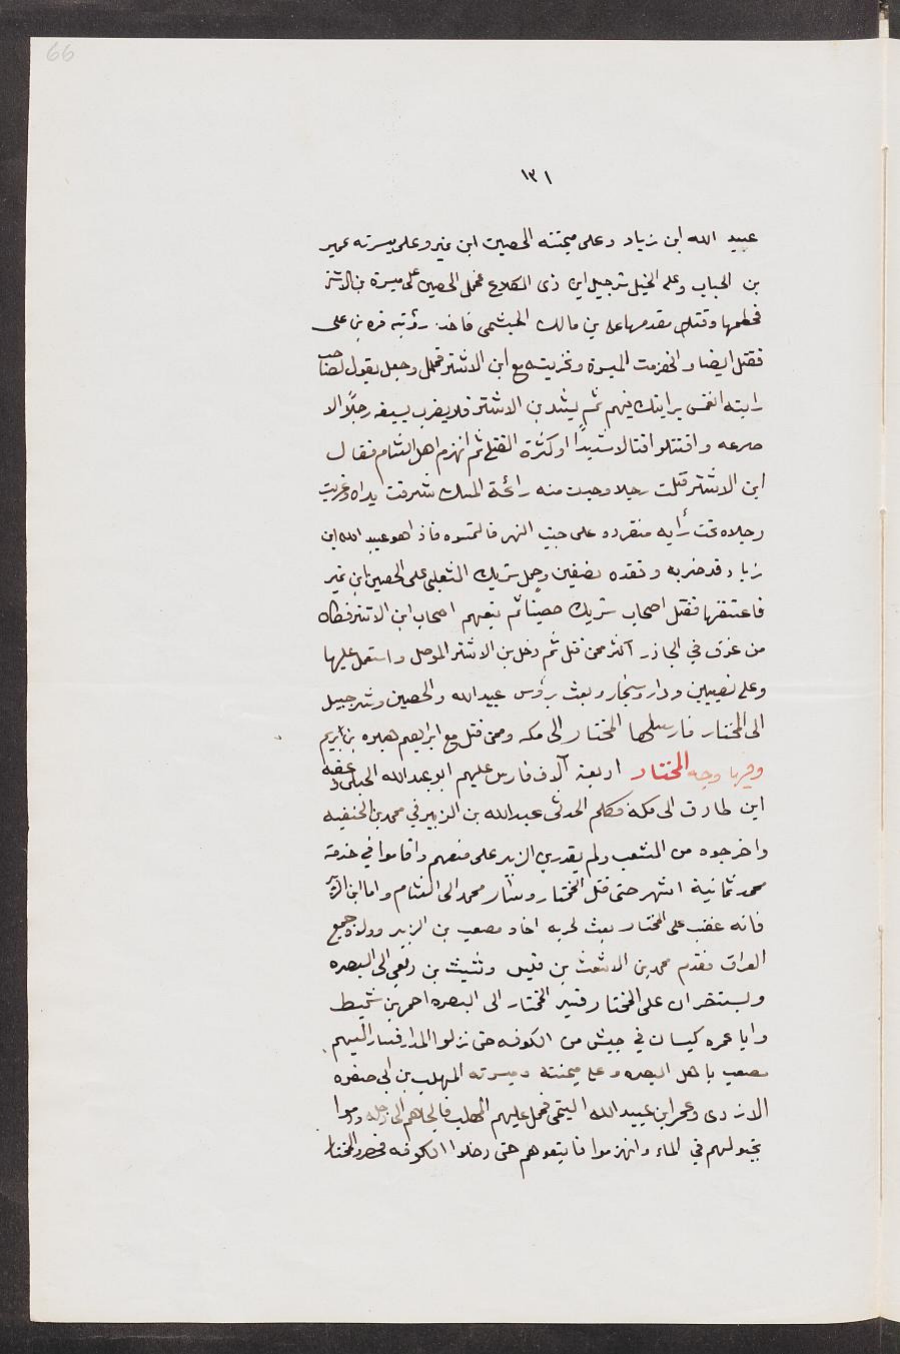 66
١٣١
عبيد الله ابن زياد وعلى ميمنته الحصين ابن نمير وعلى ميسرته عمير
بن الحباب وعلى الخيل شرحبيل ابن ذى الكلاع فحمل الحصين على ميسرة بن الاشتر
فحطمها وقتل مقدمها على بن مالك الجشمى فاخذ رؤيته قره بن على
فقتل ايضا وانهزمت الميسرة وبخزيته مع ابن الاشتر فحمل وجعل يقول لصاحب
رايته انغمس برايتك فيهم ثم يشد بن الاشتر فلا يضرب بسيفه رجلًا الا
صرعه واقتتلوا قتالا شديدًا وكثرة القتلى ثم انهزم اهل الشام فقال
ابن الاشتر قتلت رجلا وجدت منه رائحة المسك شرقت يداه وغربت
رجلاه تحت رأيه منفرده على جنب النهر فالتمسوه فاذ اهو عبيد الله ابن
زياد قد ضربه وقده نصفين وحمل شريك الثعلبى على الحصين ابن نمير
فاعتنقها فقتل اصحاب شريك حصينا ثم تبعهم اصحاب ابن الاشتر فكان
من غرق في الجازر اكثر ممن قتل ثم دخل بن الاشتر الموصل واستعمل عليها
وعلى نصيبين ودار وسنجار وبعث برؤس عبيد الله والحصين وشرحبيل
الى المختار فارسلها المختار الى مكه وممن قتل مع ابراهيم هبيره بن ابريم
وفيها وجه المختار اربعة آلاف فارس عليهم ابو عبد الله الجدلى وعقبه
ابن طارق الى مكة فكلم الجدلى عبد الله بن الزبير في محمد بن الحنفيه
واخرجوه من الشعب ولم يقدر بن الزبير على منعهم واقاموا في خدمة
محمد ثمانية اشهر حتى قتل المختار وسار محمد الى الشام واما ابن الزبير
فانه غضب على المختار بعث لحربه اخاه مصعب بن الزبير وولاه جميع
العراق فقدم محمد بن الاشعث بن قيس وشيث بن ربعى الى البصره
ويستنفران على المختار فسير المختار الى البصره احمر بن شميط
وابا عمره كيسان في جيش من الكوفه حتى نزلوا المدار فسار اليهم
مصعب باهل البصره وعلى ميمنته وميسرته المهلب بن ابى صفره
الازدى وعمر ابن عبيد الله التيمى فحمل عليهم المهلب فالجاهم الى دجله ورموا
بخيولهم في الماء وانهزموا فاتبعوهم حتى دخلوا الكوفه فحصر المختار